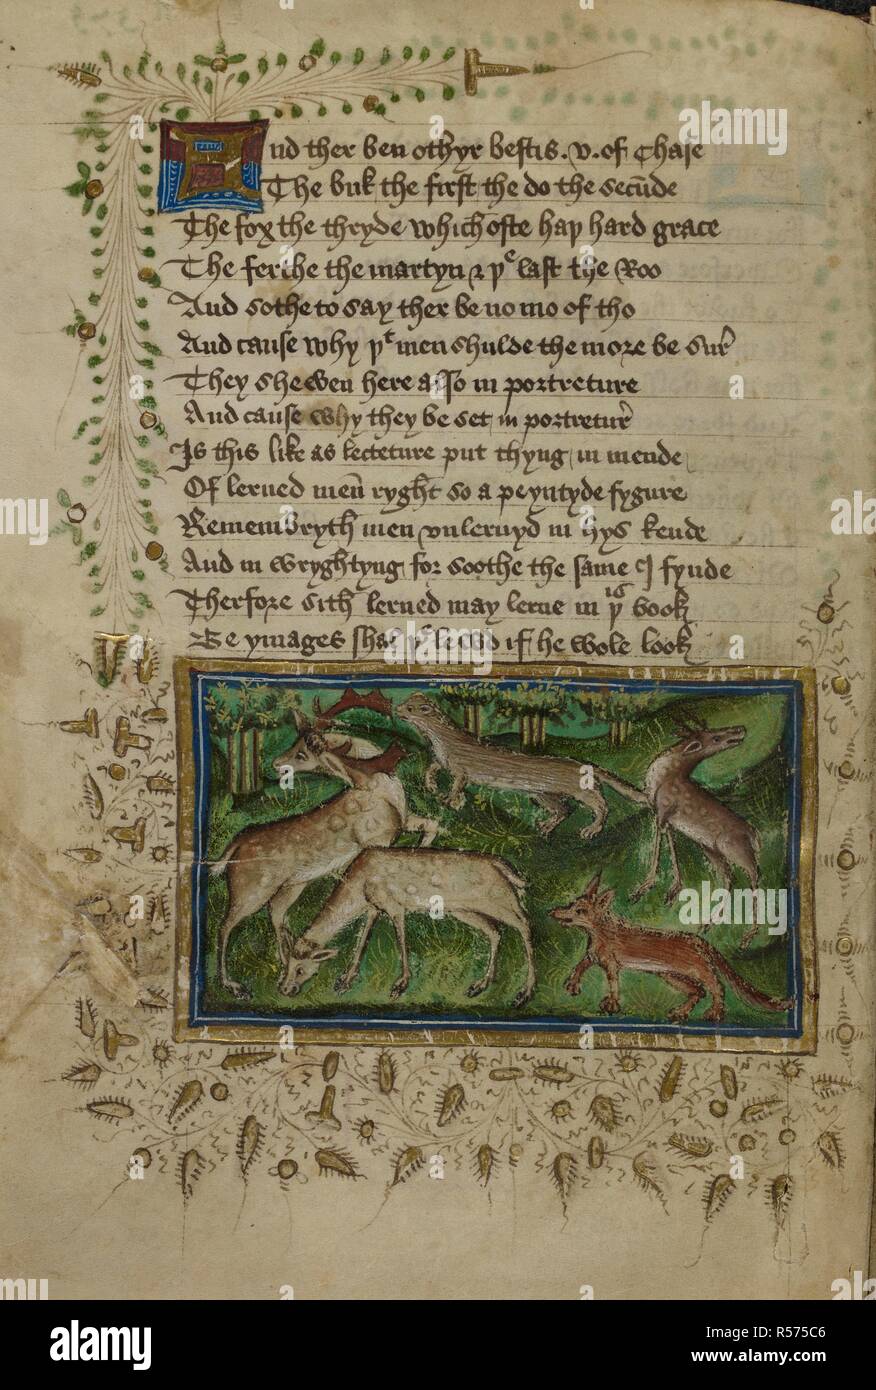 And ther ben othyr bestis .v. of Chase
The buk the first the do the secūde
The fox the thryde which ofte hap hard grace
The ferthe the martyn & þe last the Roo
And sothe to say ther be no mo of tho
And cause why þt men shulde the more be sur
They shewen here also in portreture
And cause why they be set in portretur
Is this like as lecteture put thyng in mende
Of lerned men ryght so a peyntyde fygure
Remembryth men vnlernyd in hys kende
And in wryghtyng for soothe the same I fynde
Therfore sith lerned may lerne in þis book
Be ymages shal þe lewd if he wole look
alamy
a
Image ID: R575C6
www.alamy.com